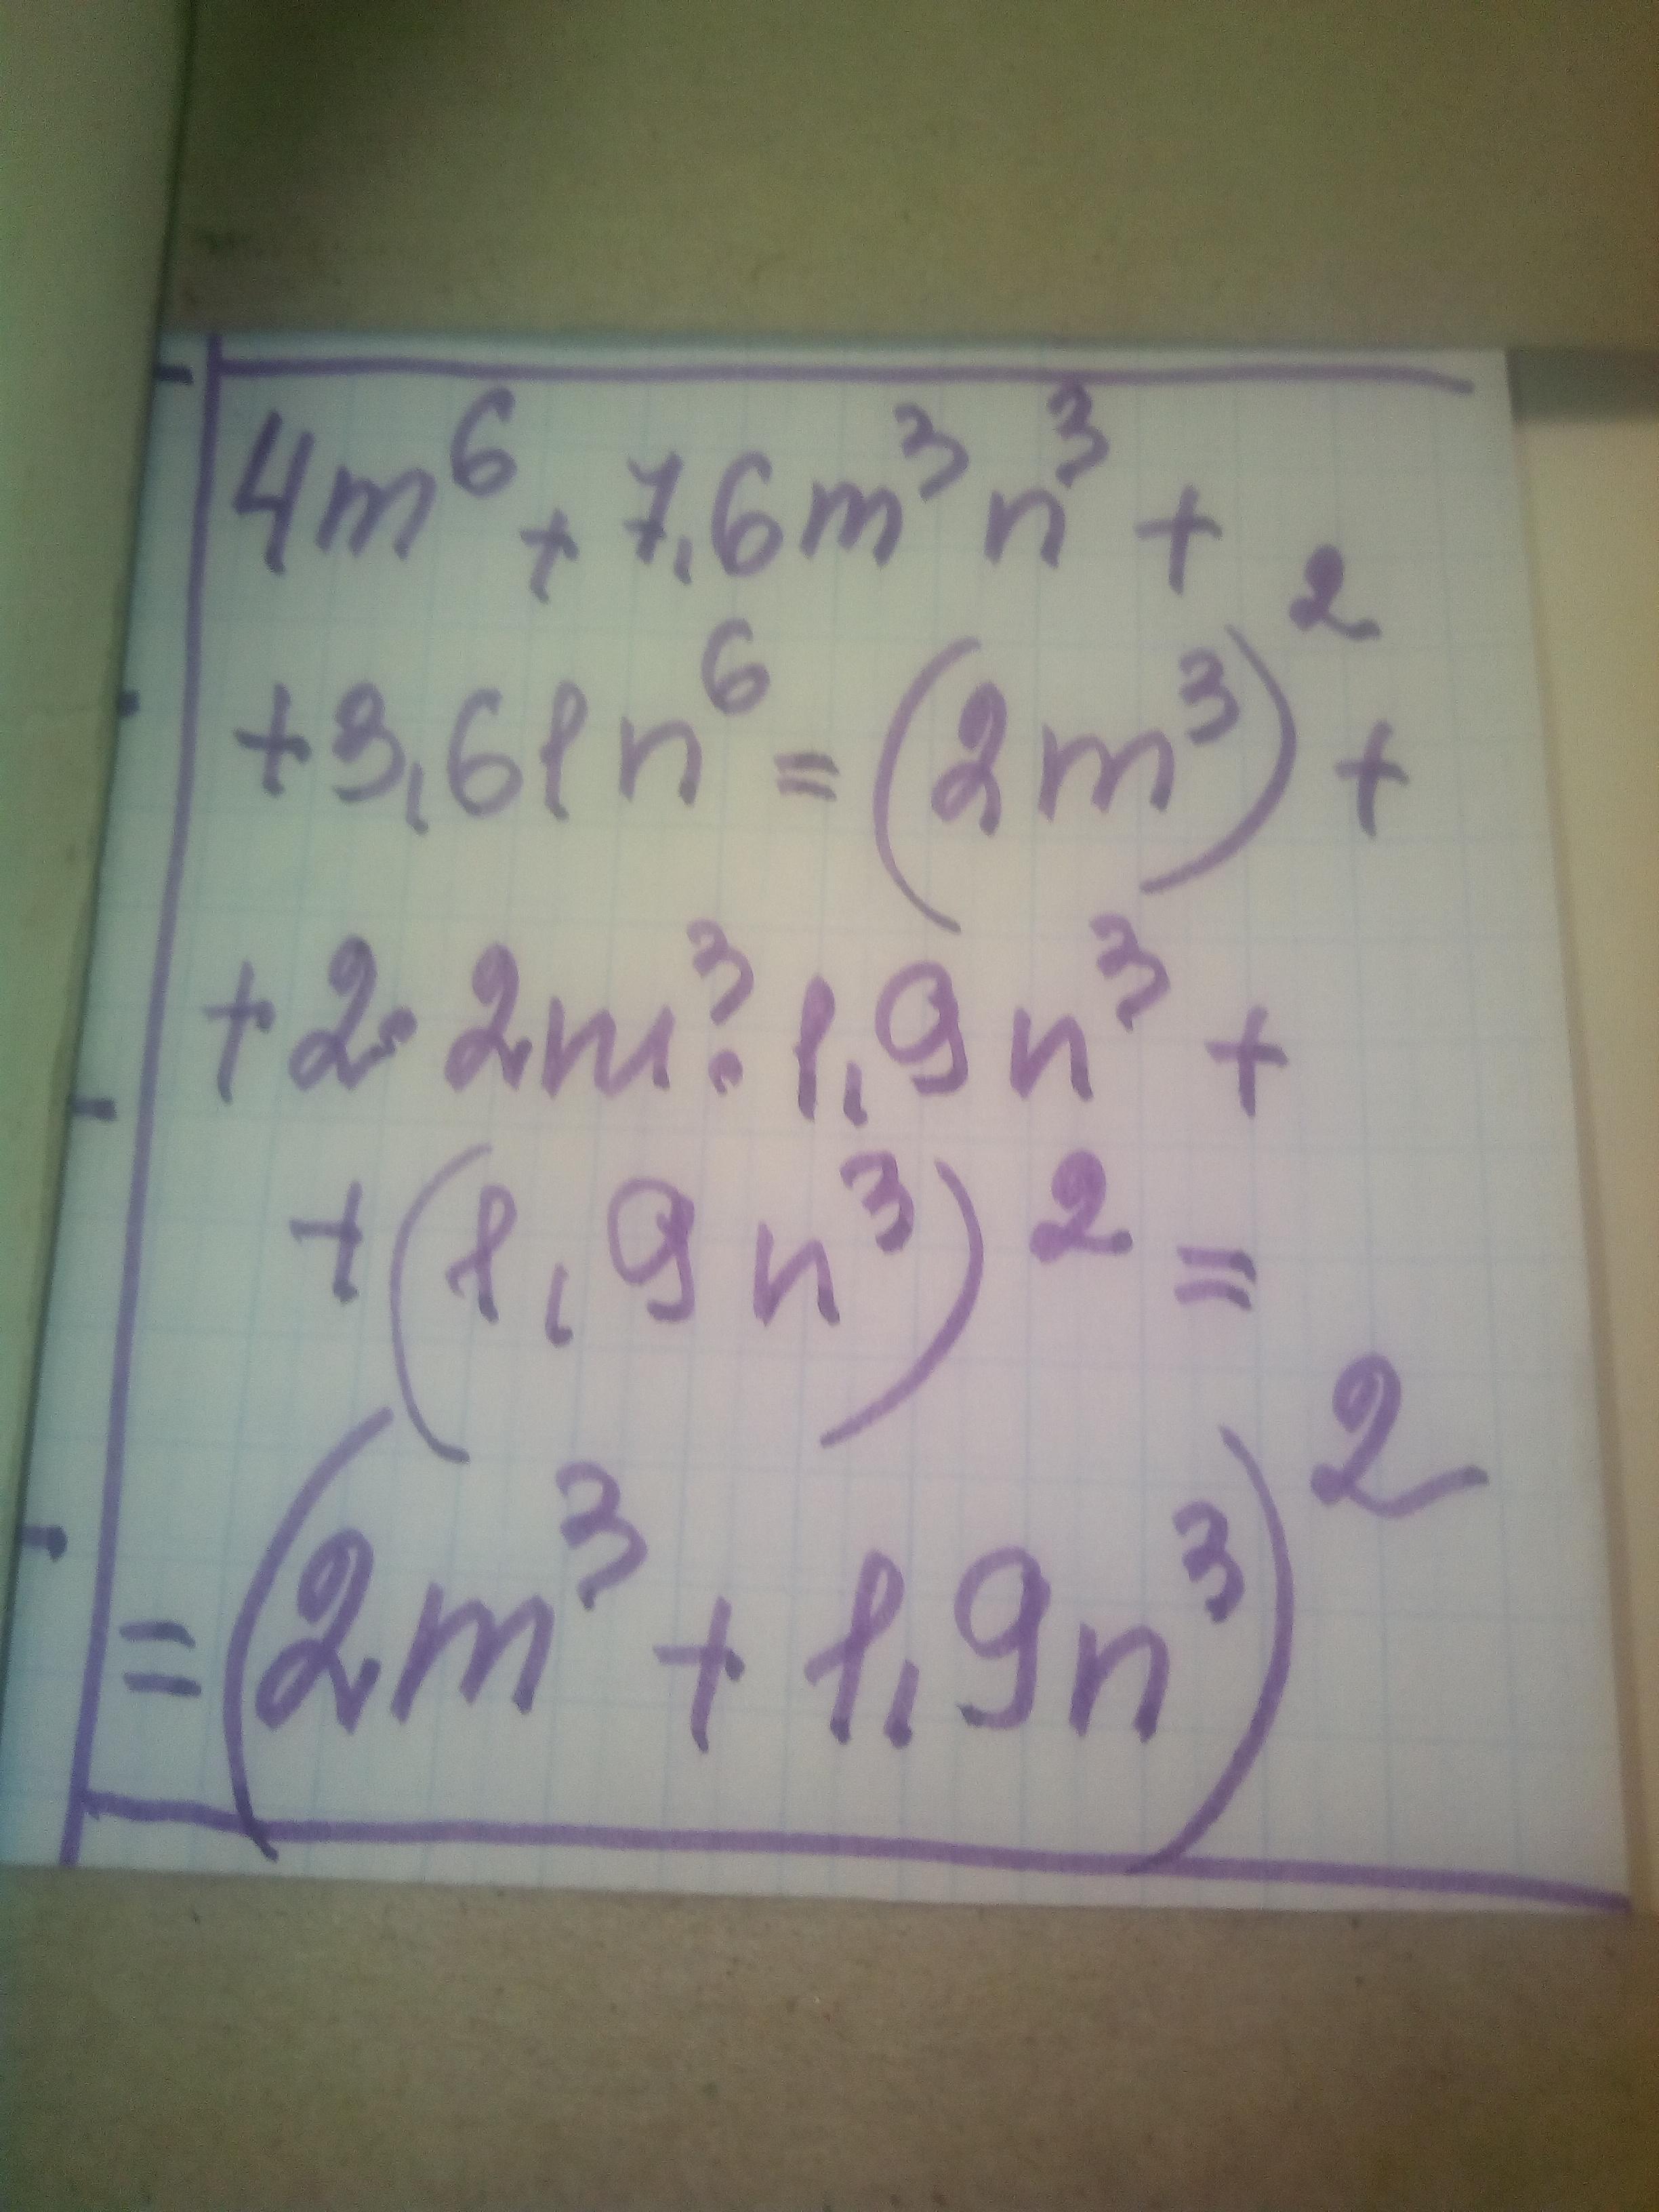 4m⁶+7,6m³n³+
+3,61n⁶=(2m³)²+
+2·2m³·1,9n³+
+(1,9n³)²=
=(2m³+1,9n³)²